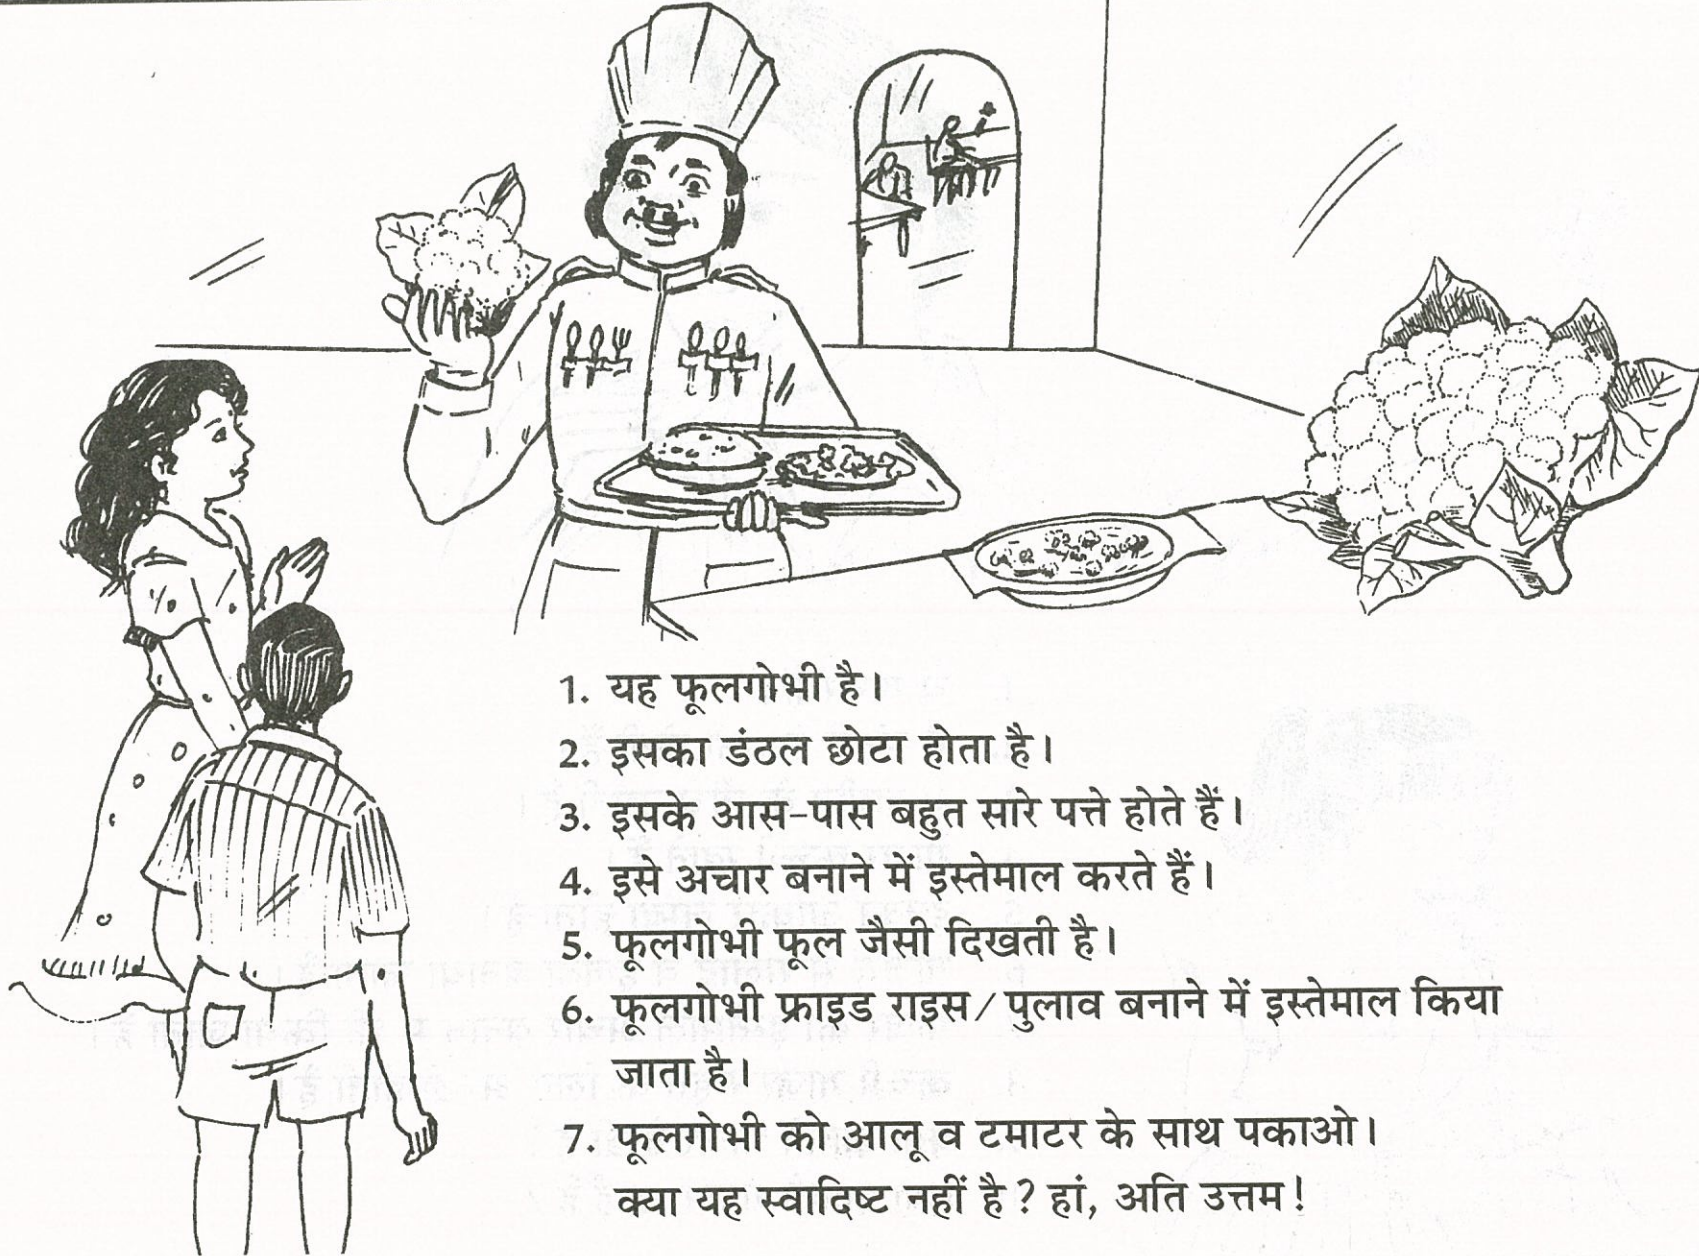 1. यह फूलगोभी है।
2. इसका डंठल छोटा होता है।
3. इसके आस-पास बहुत सारे पत्ते होते हैं।
4. इसे अचार बनाने में इस्तेमाल करते हैं।
5. फूलगोभी फूल जैसी दिखती है।
6. फूलगोभी फ्राइड राइस/ पुलाव बनाने में इस्तेमाल किया
जाता है।
7. फूलगोभी को आलू व टमाटर के साथ पकाओ।
क्या यह स्वादिष्ट नहीं है ? हां, अति उत्तम !